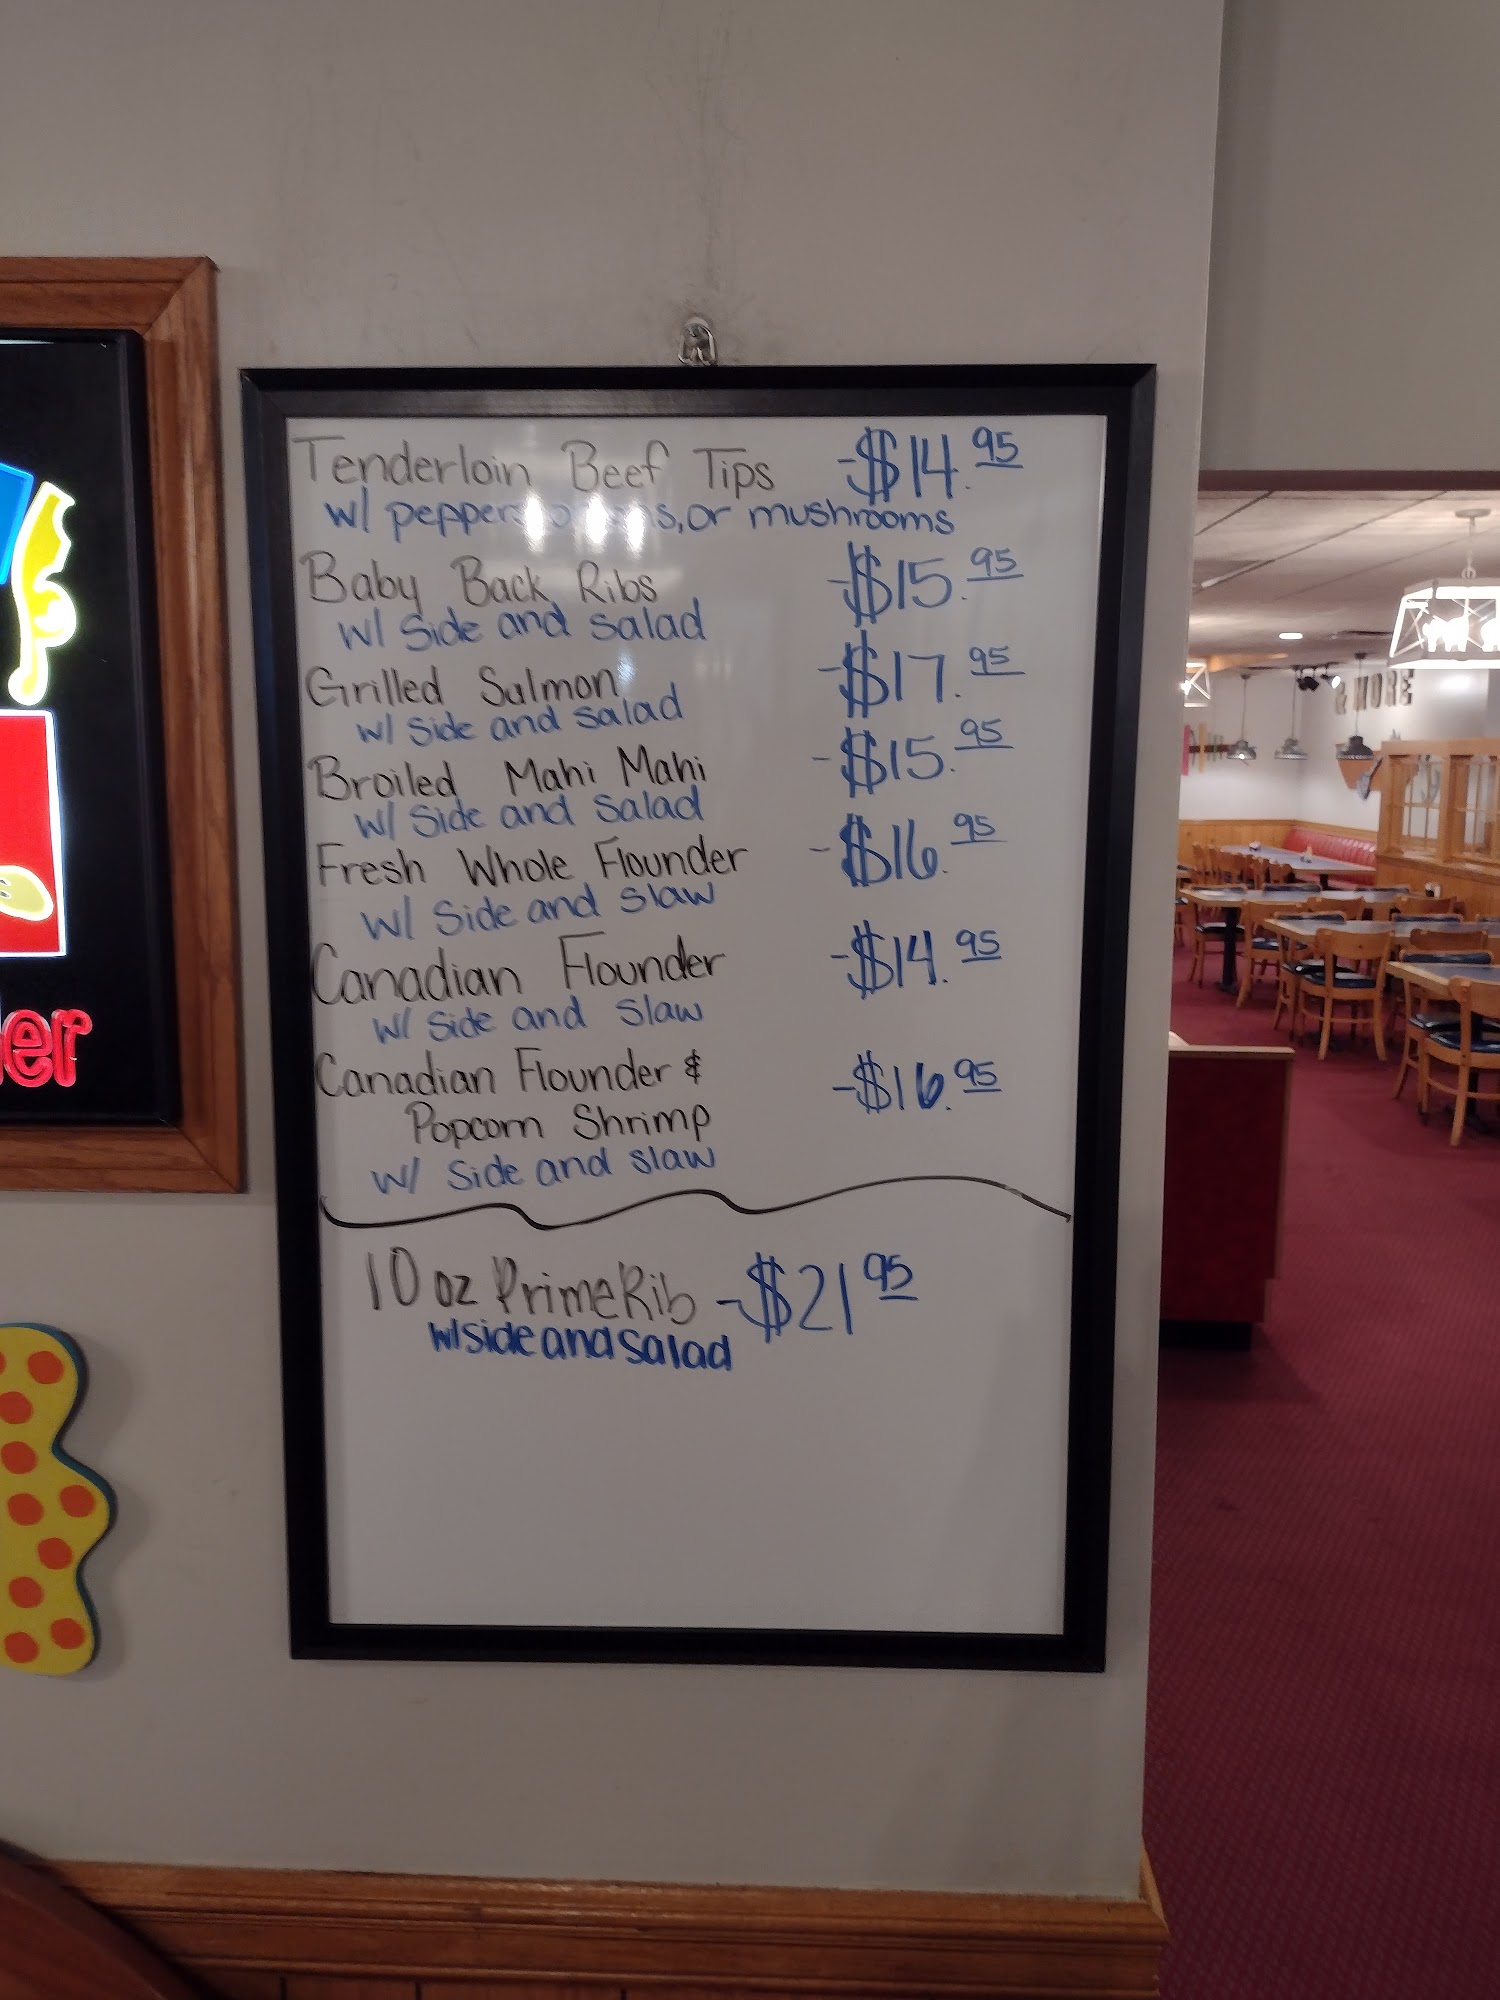 Tenderloin Beef Tips -$14.95
w/ peppers, onions, or mushrooms
Baby Back Ribs -$15.95
w/ Side and salad
Grilled Salmon -$17.95
w/ side and salad
Broiled Mahi Mahi -$15.95
w/ Side and salad
Fresh Whole Flounder -$16.95
w/ Side and slaw
Canadian Flounder -$14.95
w/ side and slaw
Canadian Flounder & -$16.95
Popcorn Shrimp
w/ side and slaw
10 oz Prime Rib -$21 95
w/side and salad
er
& MORE